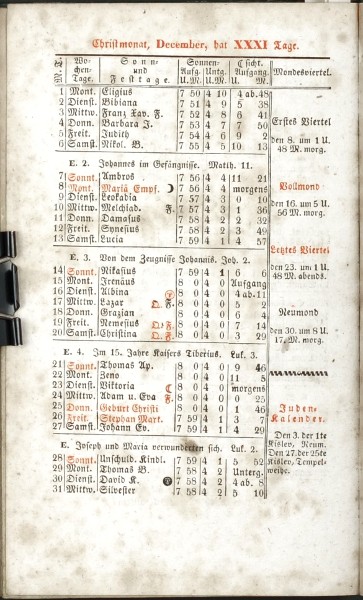 Christmonat, December, hat XXXI Tage.
M. T. Wo-chen-Tage. Sonn- und Festtage. Sonnen- Aufg. U. M. Untg. U. M. ☾sicht. Aufgang. U. M. Mondesviertel.
1 Mont. Eligius 7 50 4 10 4 ab. 48
2 Dienst. Bibiana 7 51 4 9 5 38
3 Mittw. Franz Xav. F. 7 52 4 8 6 41
4 Donn. Barbara J. 7 53 4 7 7 50
5 Freit. Judith 7 54 4 6 9 2
6 Samst. Nikol. B. 7 55 4 5 10 13
E. 2. Johannes im Gefängnisse. Matth. 11.
7 Sonnt. Ambros 7 56 4 4 11 21
8 Mont. Mariä Empf. 7 56 4 4 morgens
9 Dienst. Leokadia 7 57 4 3 0 10
10 Mittw. Melchiad. F. 7 57 4 3 1 36
11 Donn. Damasus 7 58 4 2 2 32
12 Freit. Synesius 7 58 4 2 3 49
13 Samst. Lucia 7 59 4 1 4 57
E. 3. Von dem Zeugnisse Johannis. Joh. 2.
14 Sonnt. Nikasius 7 59 4 1 6 6
15 Mont. Irenäus 8 0 4 0 Aufgang
16 Dienst. Albina 8 0 4 0 4 ab. 11
17 Mittw. Lazar F. 8 0 4 0 5 2
18 Donn. Grazian 8 0 4 0 6 4
19 Freit. Nemesius F. 8 0 4 0 7 14
20 Samst. Christina F. 8 0 4 0 8 29
E. 4. Im 15. Jahre Kaisers Tiberius. Luk. 3.
21 Sonnt. Thomas Ap. 8 0 4 0 9 46
22 Mont. Zeno 8 0 4 0 11 5
23 Dienst. Viktoria ☾ 8 0 4 0 morgens
24 Mittw. Adam u. Eva F. 8 0 4 0 0 25
25 Donn. Geburt Christi 8 0 4 0 1 46
26 Freit. Stephan Mart. 7 59 4 1 3 7
27 Samst. Johann Ev. 7 59 4 1 4 29
E. Joseph und Maria verwunderten sich. Luk. 2.
28 Sonnt. Unschuld. Kindl. 7 59 4 1 5 52
29 Mont. Thomas B. 7 58 4 2 Unterg.
30 Dienst. David K. 7 58 4 2 4 ab. 8
31 Mittw. Silvester 7 58 4 2 5 10
Erstes Viertel
den 8. um 1 U.
48 M. morg.
Vollmond
den 16. um 5 U.
56 M. morg.
Letztes Viertel
den 23. um 1 U.
48 M. abends.
Neumond
den 30. um 8 U.
17 M. morg.
Juden-
Kalender.
Den 3. der 1te
Kislev, Neum.
Den 27. der 25te
Kislev, Tempel-
weihe.